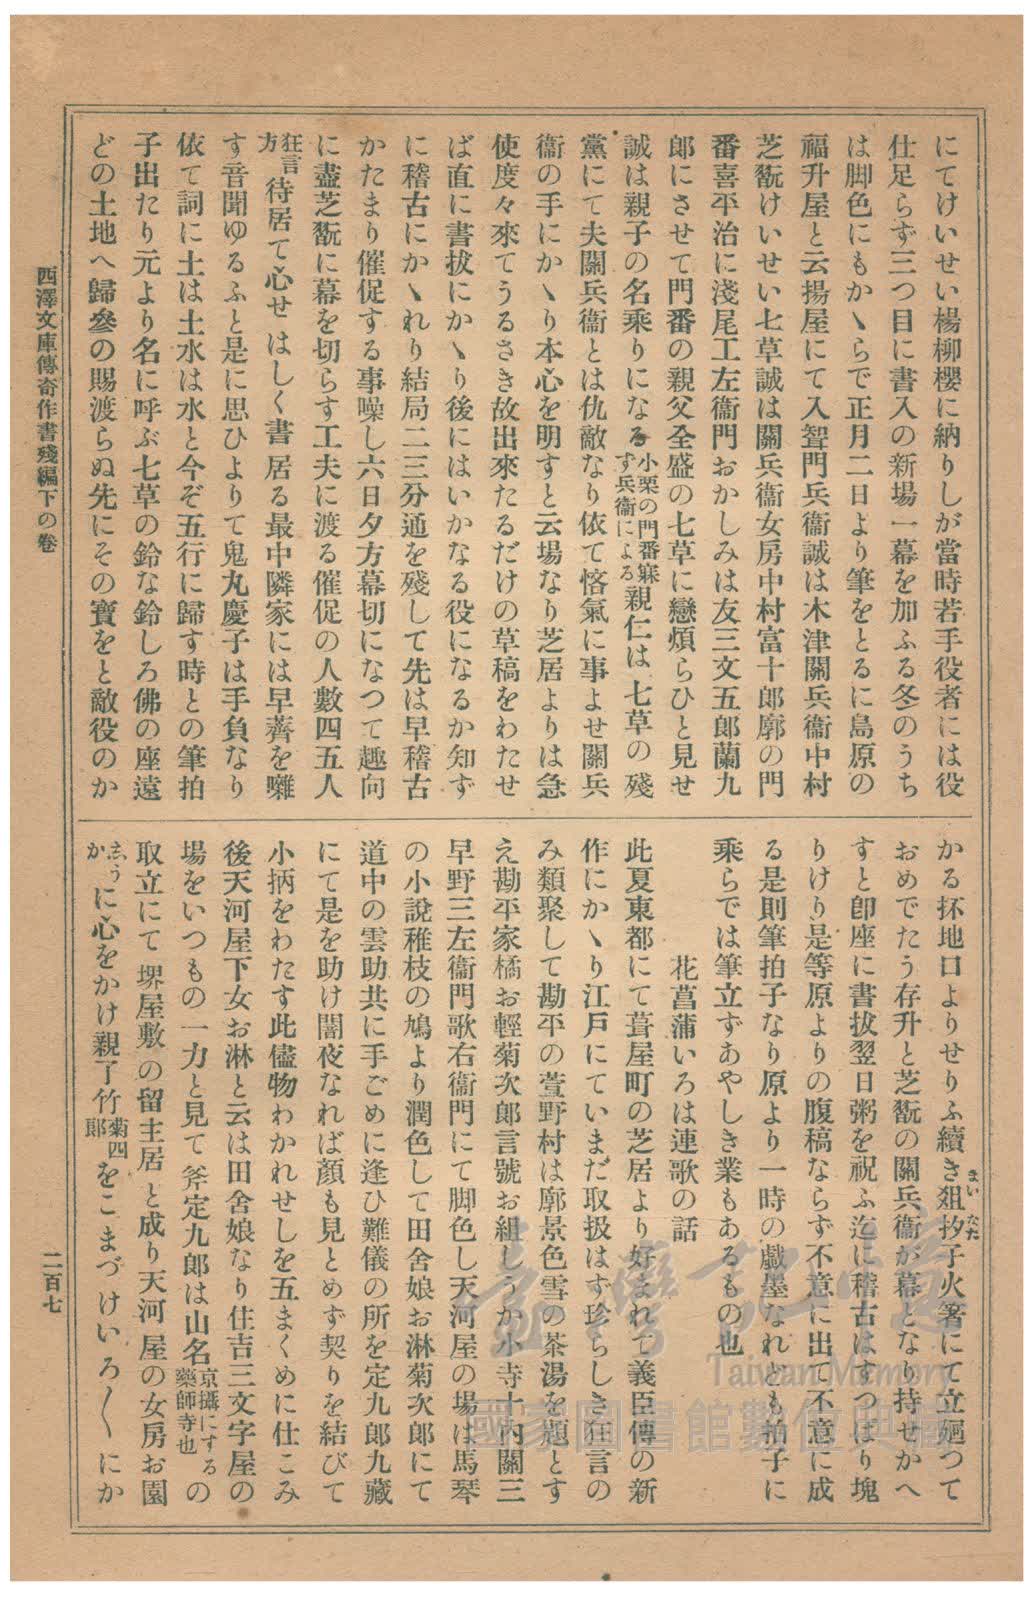 にてけいせい楊柳櫻に納りしが當時若手役者には役
仕足らず三つ目に書入の新場一幕を加ふる冬のうち
は脚色にもかヽらで正月二日より筆をとるに島原の
福升屋と云揚屋にて入聟門兵衞誠は木津關兵衞中村
芝翫けいせい七草誠は關兵衞女房中村富十郎廓の門
番喜平治に淺尾工左衞門おかしみは友三文五郎蘭九
郎にさせて門番の親父全盛の七草に戀煩らひと見せ
誠は親子の名乘りになる小栗の門番寐ず兵衞による親仁は七草の殘
黨にて夫關兵衞とは仇敵なり依て悋氣に事よせ關兵
衞の手にかヽり本心を明すと云場なり芝居よりは急
使度々來てうるさき故出來たるだけの草稿をわたせ
ば直に書拔にかヽり後にはいかなる役になるか知ず
に稽古にかヽれり結局二三分通を殘して先は早稽古
かたまり催促する事噪し六日夕方幕切になつて趣向
に盡芝翫に幕を切らす工夫に渡る催促の人數四五人
狂言方待居て心せはしく書居る最中隣家には早薺を囃
す音聞ゆるふと是に思ひよりて鬼丸慶子は手負なり
依て詞に土は土水は水と今ぞ五行に歸す時との筆拍
子出たり元より名に呼ぶ七草の鈴な鈴しろ佛の座遠
どの土地へ歸參の賜渡らぬ先にその寶をと敵役のか
かる抔地口よりせりふ續き爼抄子火箸にて立廻つて
まいたた
おめでたう存升と芝翫の關兵衞が幕となり持せかへ
すと卽座に書拔翌日粥を祝ふ迄に稽古はすつぱり塊
りけり是等原よりの腹稿ならず不意に出て不意に成
る是則筆拍子なり原より一時の戲墨なれども拍子に
乘らでは筆立ずあやしき業もあるもの也
花菖蒲いろは連歌の話
此夏東都にて葺屋町の芝居より好まれて義臣傳の新
作にかヽり江戸にていまだ取扱はず珍らしき狂言の
み類聚して勘平の萱野村は廓景色雪の茶湯を題とす
え勘平家橘お輕菊次郎言號お組しうか小寺十內關三
早野三左衞門歌右衞門にて脚色し天河屋の場は馬琴
の小說稚枝の鳩より潤色して田舍娘お淋菊次郎にて
道中の雲助共に手ごめに逢ひ難儀の所を定九郎九藏
にて是を助け闇夜なれば顏も見とめず契りを結びて
小柄をわたす此儘物わかれせしを五まくめに仕こみ
後天河屋下女お淋と云は田舍娘なり住吉三文字屋の
場をいつもの一力と見て斧定九郎は山名京攝にする藥師寺也の
取立にて堺屋敷の留主居と成り天河屋の女房お園
しうかに心をかけ親了竹菊四郎をこまづけいろ〱にか
西澤文庫傳奇作書殘編下の卷
二百七
臺灣記憶
Taiwan Memory
國家圖書館數位典藏